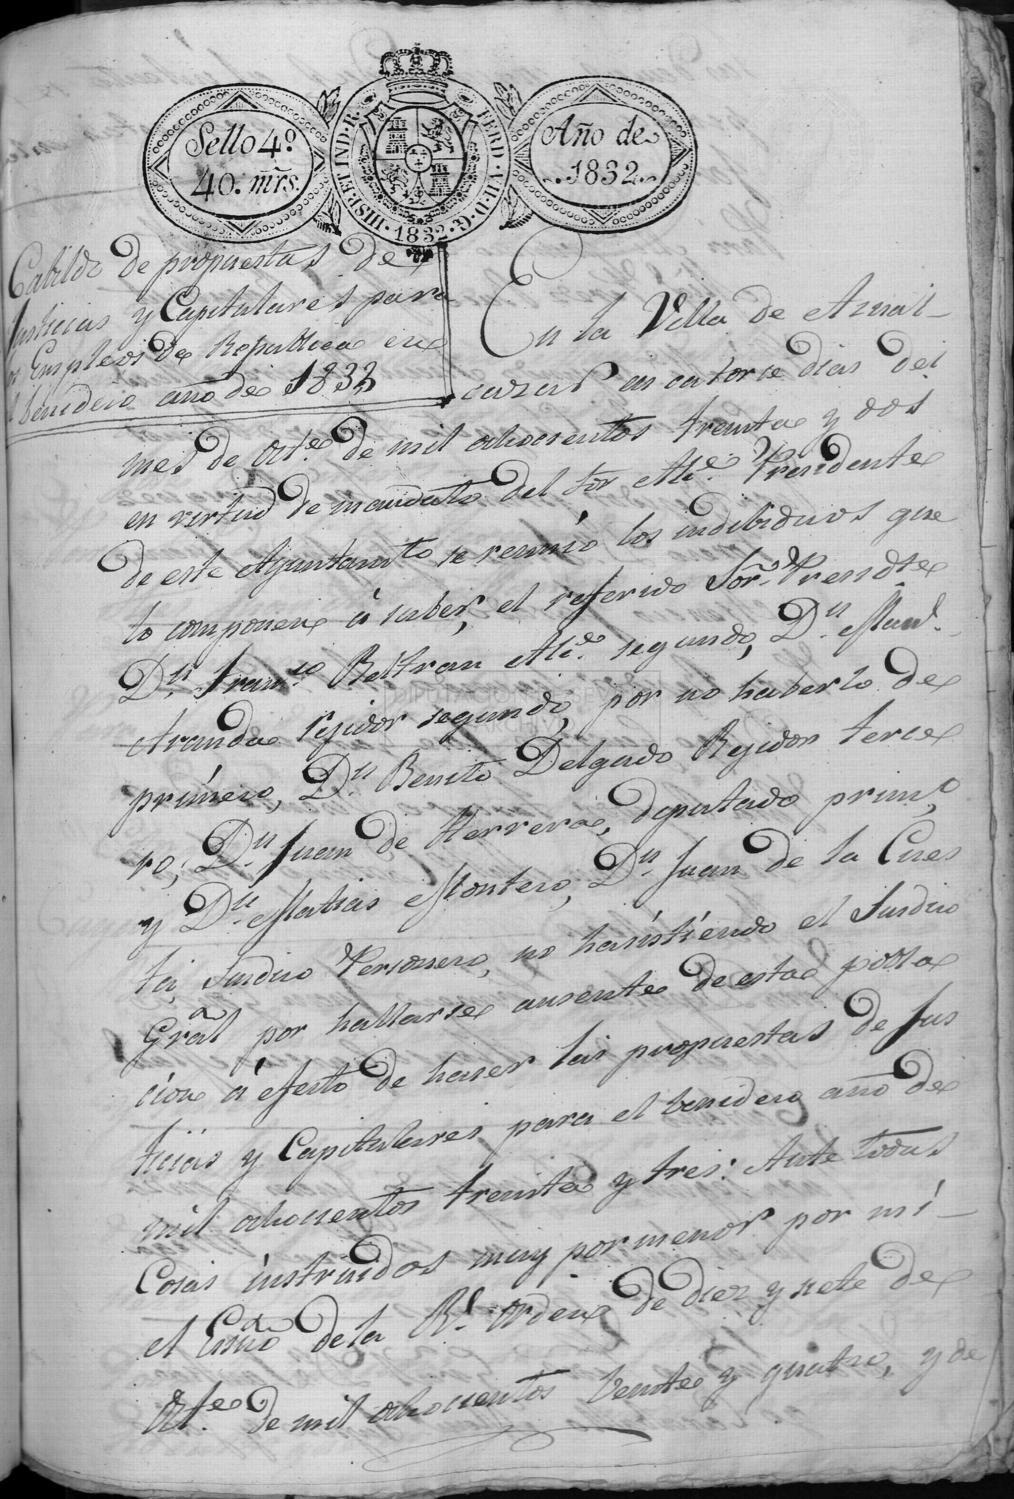 Sello 4º
40. mrs.
HISP. ET IND. R. FERD. VII. D. G.
1832
Año de
1832
Cabildo de propuestas de
Justicias y Capitulares para
Empleos de Republica en
benidero año de 1833
En la Villa de Aznal-
cazar en catorce dias del
mes de Octe. de mil ochocientos treinta y dos
en virtud de mandato del Sor Alc.e Presidente
de este Ayuntamto se reunió los indibiduos que
lo componen á saber, el referido Sor. Presidte
Dn. Franco. Beltran Alc.e segundo, Dn. Manl.
Aranda rejidor segundo, por no haberlo de
primero, Dn. Benito Delgado Rejidor terce
ro, Dn. Juan de Herrera, deputado prim.o
y Dn. Matias Montero, Dn. Juan de la Cues
ta, Sindico Personero, no hasistiendo el Sindico
Gral por hallarse ausente de esta pobla
cion á efecto de haser las propuestas de Jus
ticias y Capitulares para el benidero año de
mil ochocientos treinta y tres: Ante todas
Cosas instruidos muy por menor por mí
el Essno de la Rl. orden de diez y siete de
Octe. de mil ochocientos veinte y quatro, y de